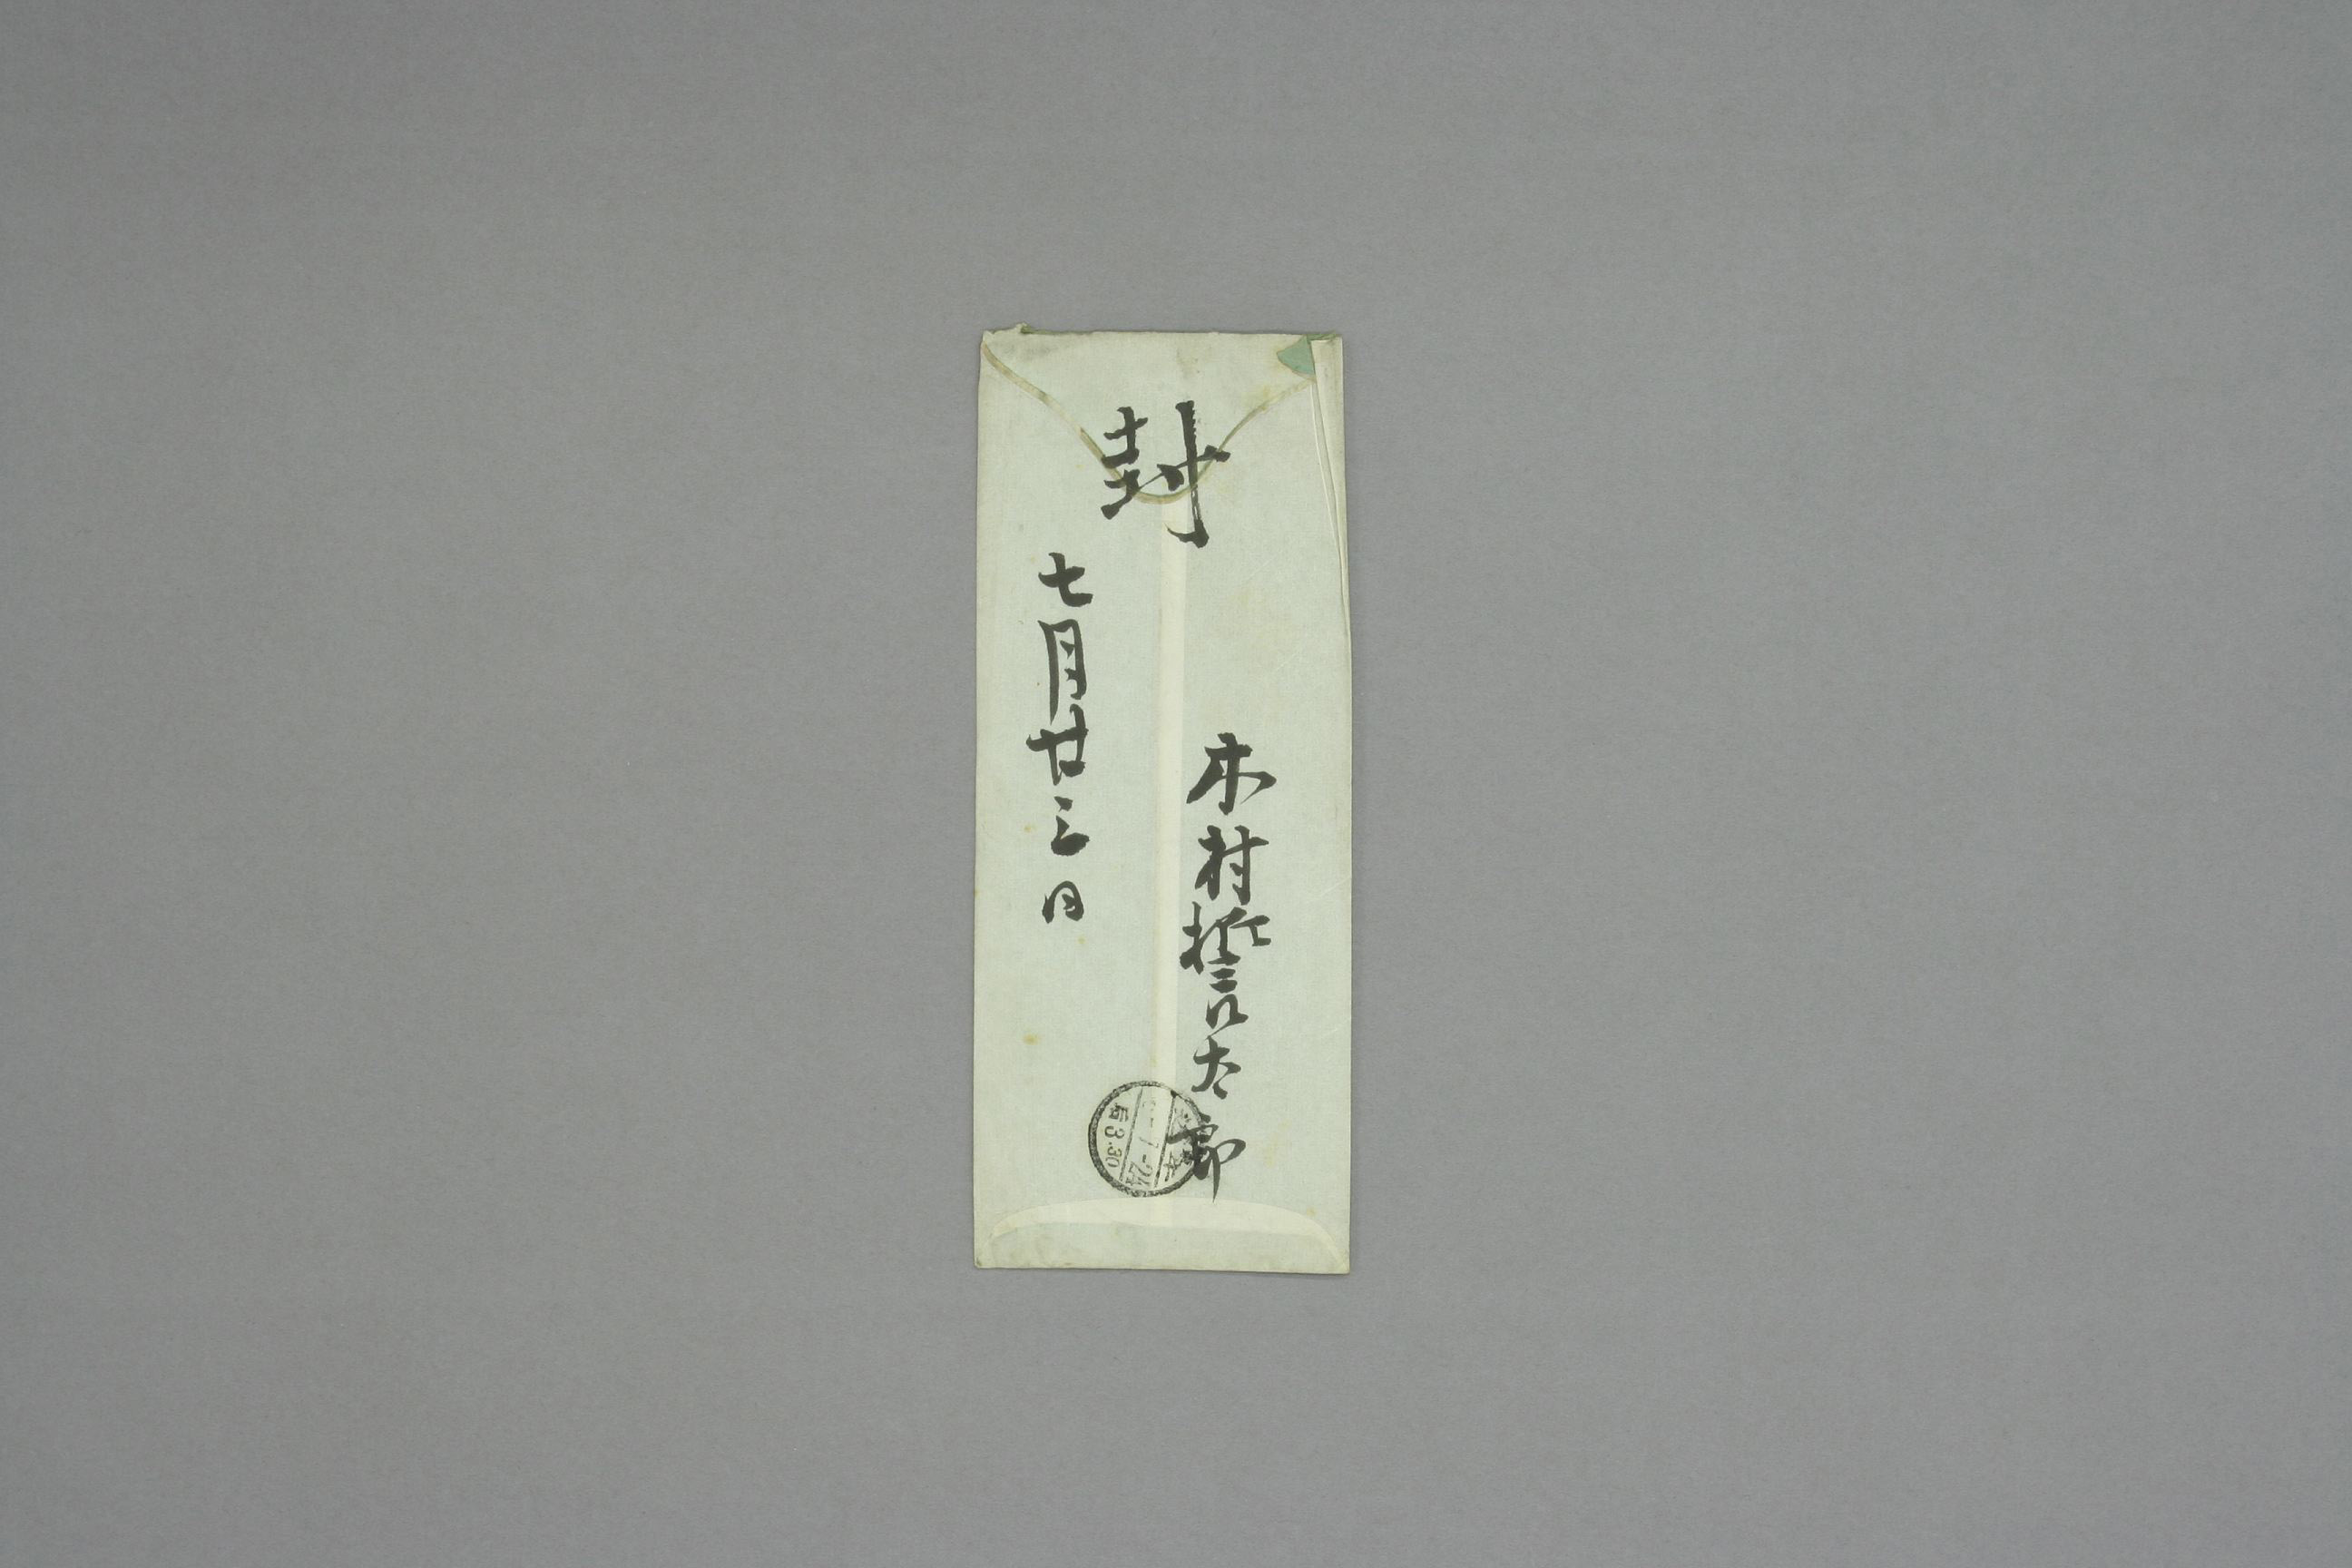 封
木村誓太郎
七月廿三日
7-24
后3.30